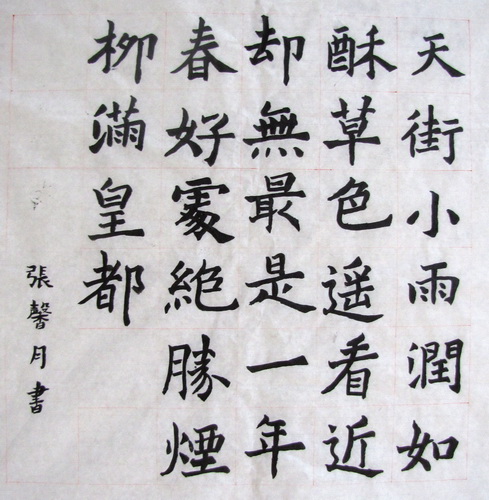 天街小雨潤如
酥草色遥看近
却無最是一年
春好處絕勝煙
柳滿皇都
張馨月書